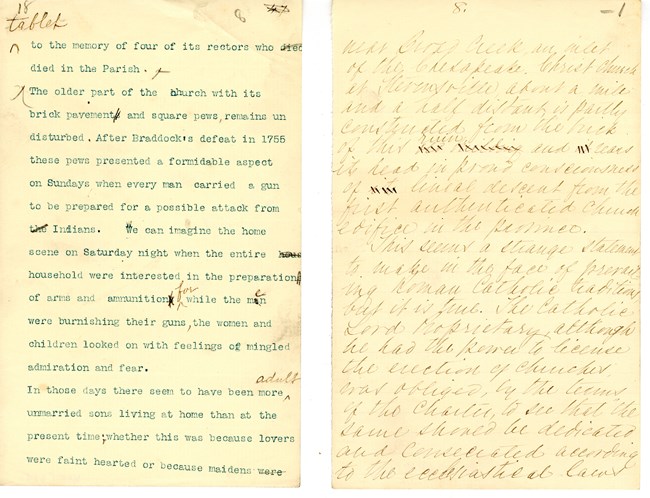 18
8
tablet
to the memory of four of its rectors who died
died in the Parish.
The older part of the church with its
brick pavement and square pews, remains un
disturbed. After Braddock's defeat in 1755
these pews presented a formidable aspect
on Sundays when every man carried a gun
to be prepared for a possible attack from
the Indians. We can imagine the home
scene on Saturday night when the entire hous
household were interested in the preparation
of arms and ammunition, for while the men
were burnishing their guns, the women and
children looked on with feelings of mingled
admiration and fear.
adult
In those days there seem to have been more
unmarried sons living at home than at the
present time; whether this was because lovers
were faint hearted or because maidens were
8
-1
near Broad Creek an inlet
of the Chesapeake. Christ Church
at Stevensville about a mile
and a half distant is partly
constructed from the brick
of this ruin and rears
its head in proud consciousness
of lineal descent from the
first authenticated church
edifice in the province.
This seems a strange statement
to make in the face of
Roman Catholic traditions
but it is true. The Catholic
Lord Proprietary, although
he had the power to license
the erection of churches
was obliged, by the terms
of the Charter, to see that the
same should be dedicated
and consecrated according
to the ecclesiastical laws